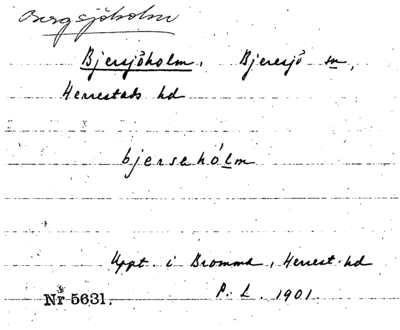 Bergsjöholm
Bjersjöholm. Bjeresjö sn,
Herrestads hd
bjersehólm
Uppt. i Bromma, Herrest. hd
Nr 5631. P. L. 1901.